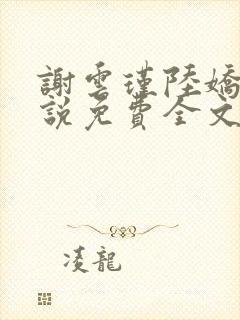 謝雲瑾陸嬌
說免費全文
凌龍